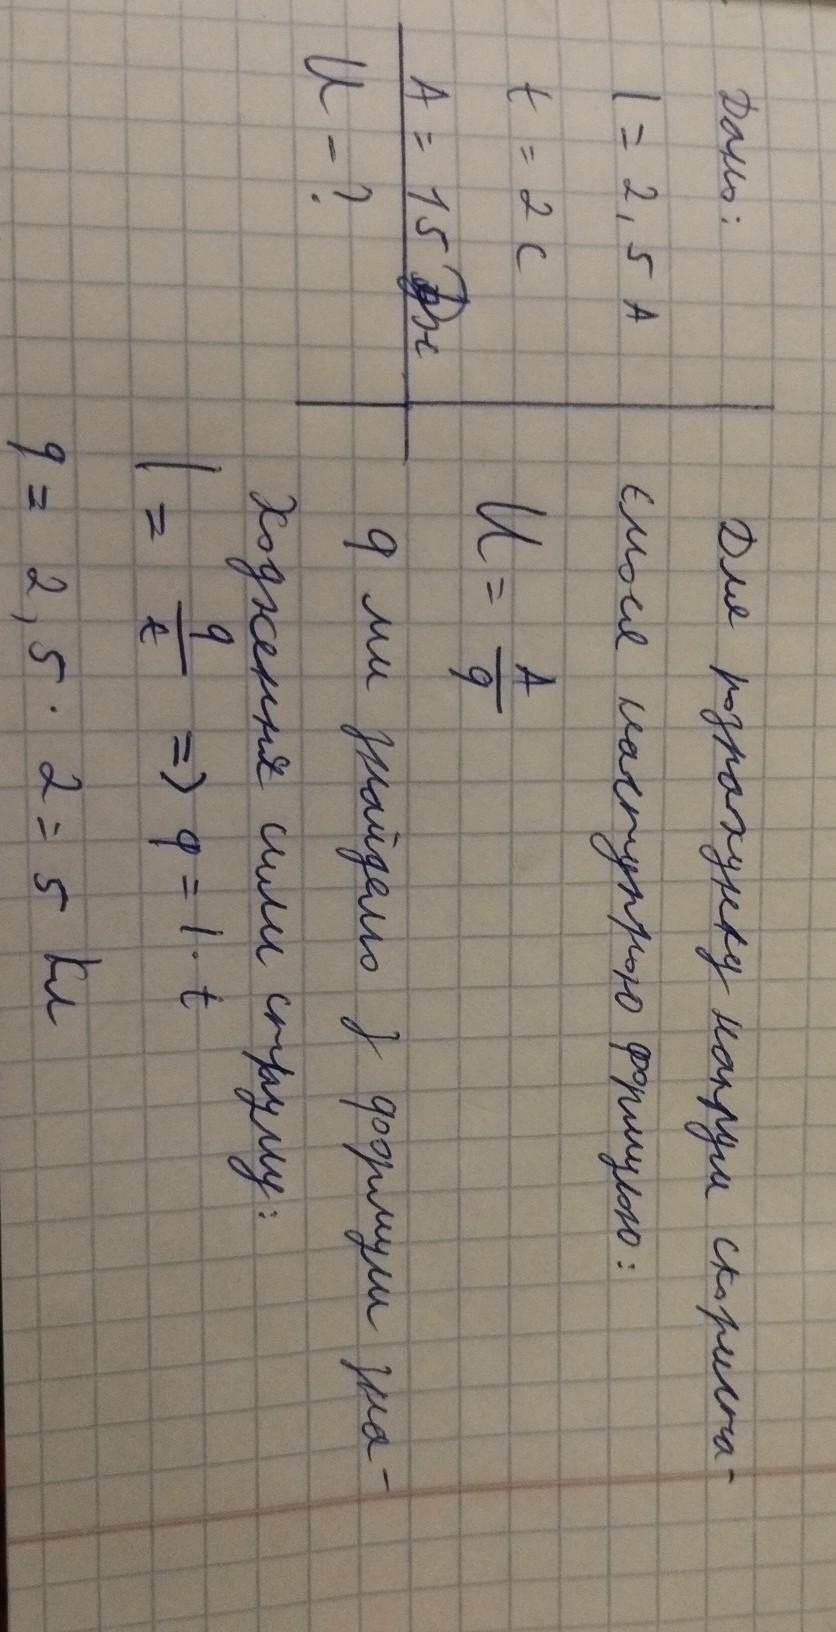 Дано:
I = 2,5 А
t = 2 с
A = 15 Дж
U - ?
Для розрахунку напруги скориста-
ємося наступною формулою:
U = A/q
q ми знайдемо з формули зна-
ходження сили струму:
I = q/t => q = I · t
q = 2,5 · 2 = 5 Кл